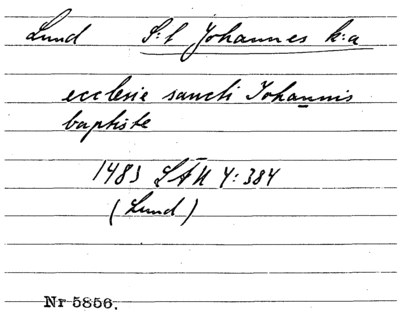 Lund S:t Johannes k:a
ecclesie sancti Johannis
baptiste
1483 LÄU 4:384
(Lund)
Nr 5856.